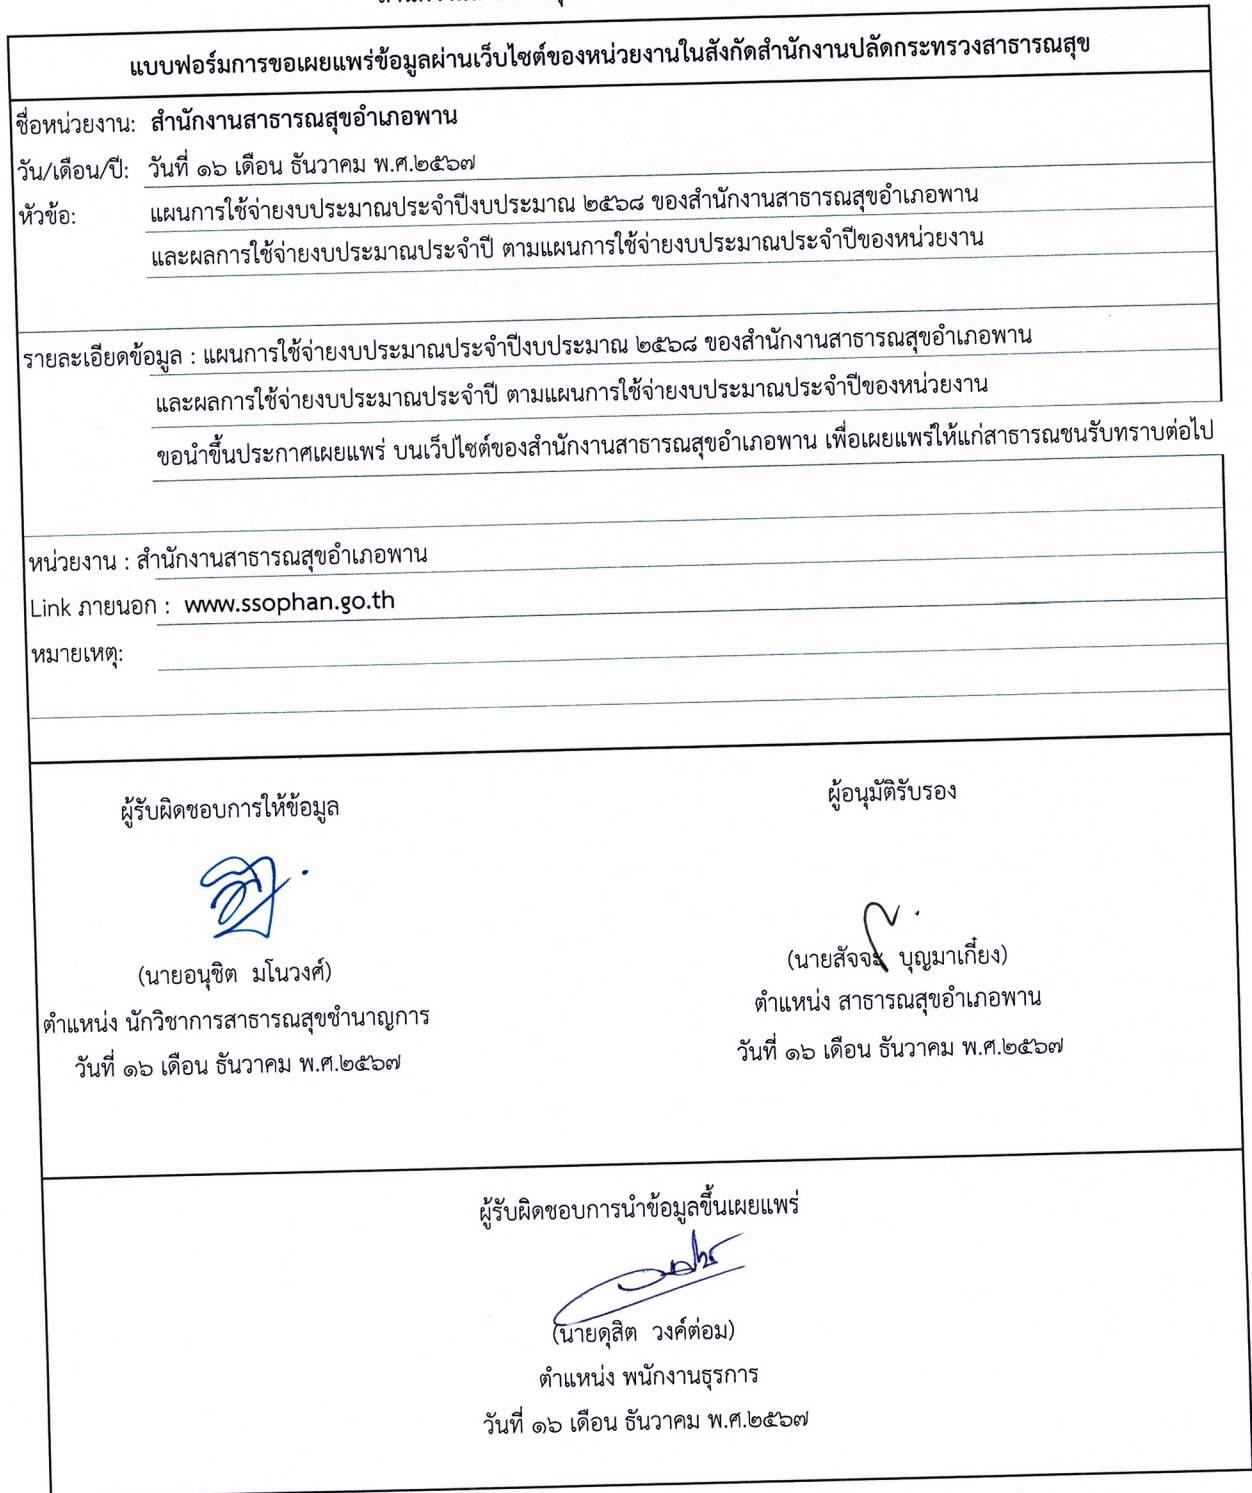 แบบฟอร์มการขอเผยแพร่ข้อมูลผ่านเว็บไซต์ของหน่วยงานในสังกัดสำนักงานปลัดกระทรวงสาธารณสุข
ชื่อหน่วยงาน: สำนักงานสาธารณสุขอำเภอพาน
วัน/เดือน/ปี: วันที่ ๑๖ เดือน ธันวาคม พ.ศ.๒๕๖๗
หัวข้อ: แผนการใช้จ่ายงบประมาณประจำปีงบประมาณ ๒๕๖๘ ของสำนักงานสาธารณสุขอำเภอพาน
และผลการใช้จ่ายงบประมาณประจำปี ตามแผนการใช้จ่ายงบประมาณประจำปีของหน่วยงาน
รายละเอียดข้อมูล : แผนการใช้จ่ายงบประมาณประจำปีงบประมาณ ๒๕๖๘ ของสำนักงานสาธารณสุขอำเภอพาน
และผลการใช้จ่ายงบประมาณประจำปี ตามแผนการใช้จ่ายงบประมาณประจำปีของหน่วยงาน
ขอนำขึ้นประกาศเผยแพร่ บนเว็ปไซต์ของสำนักงานสาธารณสุขอำเภอพาน เพื่อเผยแพร่ให้แก่สาธารณชนรับทราบต่อไป
หน่วยงาน : สำนักงานสาธารณสุขอำเภอพาน
Link ภายนอก : www.ssophan.go.th
หมายเหตุ:
ผู้รับผิดชอบการให้ข้อมูล
(นายอนุชิต มโนวงศ์)
ตำแหน่ง นักวิชาการสาธารณสุขชำนาญการ
วันที่ ๑๖ เดือน ธันวาคม พ.ศ.๒๕๖๗
ผู้อนุมัติรับรอง
(นายสัจจะ บุญมาเกี๋ยง)
ตำแหน่ง สาธารณสุขอำเภอพาน
วันที่ ๑๖ เดือน ธันวาคม พ.ศ.๒๕๖๗
ผู้รับผิดชอบการนำข้อมูลขึ้นเผยแพร่
(นายดุสิต วงค์ต่อม)
ตำแหน่ง พนักงานธุรการ
วันที่ ๑๖ เดือน ธันวาคม พ.ศ.๒๕๖๗